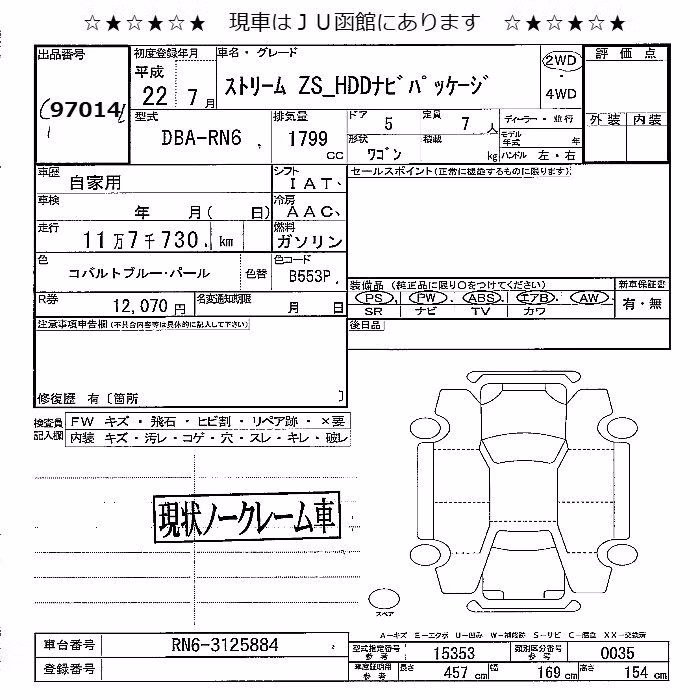 ☆★☆★☆★ 現車はＪＵ函館にあります ☆★☆★☆★
出品番号 初度登録年月 車名・グレード 2WD 評価点
平成 22年 7月 ストリーム ZS_HDDナビパッケージ 4WD
97014 外装 内装
型式 排気量 ドア 5 定員 7人 ディーラー・並行
DBA-RN6 1799cc 形状 ワゴン 積載 kg モデル年式 年
ハンドル 左・右
車歴 自家用 シフト IAT セールスポイント(正常に機能するものに限ります)
車検 年 月( 日) 冷房 AAC
走行 11万7千730 km 燃料 ガソリン
色 コバルトブルー・パール 色替 色コード B553P
装備品 (純正品に限り○をつけてください) 新車保証書
R券 12,070円 名変通知期限 月 日 PS・PW・ABS・エアB・AW 有・無
SR ナビ TV カワ
注意事項申告欄(不具合内容等は具体的に記入して下さい) 後日品
修復歴 有〔箇所 〕
検査員記入欄 FW キズ・飛石・ヒビ割・リペア跡・×要
内装 キズ・汚レ・コゲ・穴・スレ・キレ・破レ
現状ノークレーム車
スペア
A－キズ E－エクボ U－凹み W－補修跡 S－サビ C－腐食 XX－交換済
車台番号 RN6-3125884 型式指定番号参考 15353 類別区分番号参考 0035
登録番号 車庫証明用参考 長さ 457cm 幅 169cm 高さ 154cm